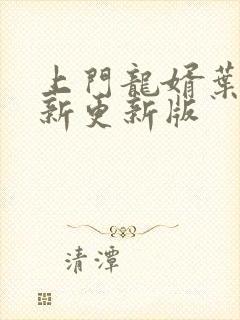 上門龍婿葉
新更新版
清潭